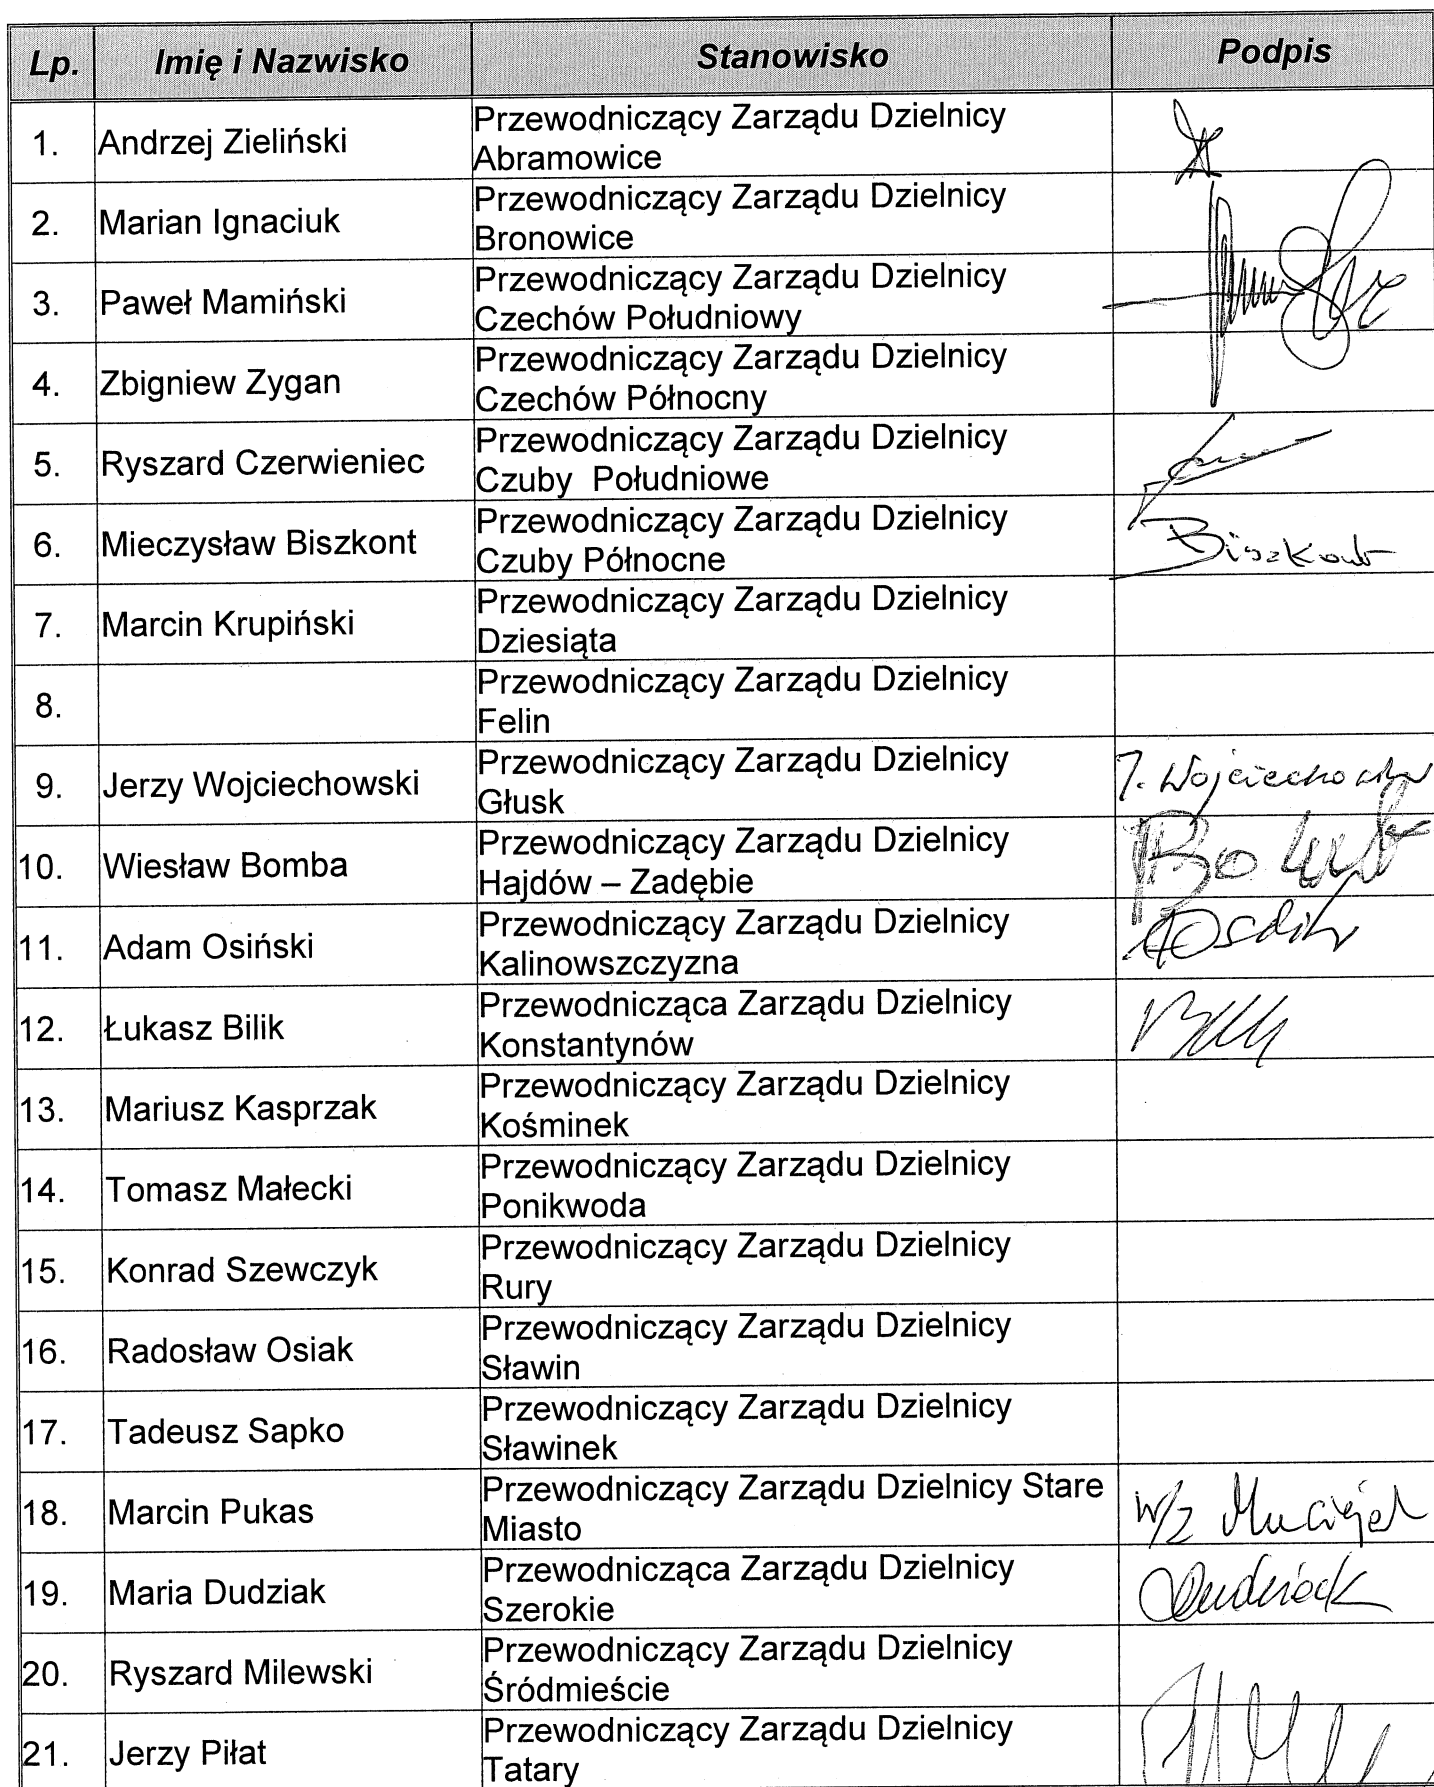 Lp. Imię i Nazwisko Stanowisko Podpis
1. Andrzej Zieliński Przewodniczący Zarządu Dzielnicy
Abramowice
2. Marian Ignaciuk Przewodniczący Zarządu Dzielnicy
Bronowice
3. Paweł Mamiński Przewodniczący Zarządu Dzielnicy
Czechów Południowy
4. Zbigniew Zygan Przewodniczący Zarządu Dzielnicy
Czechów Północny
5. Ryszard Czerwieniec Przewodniczący Zarządu Dzielnicy
Czuby Południowe
6. Mieczysław Biszkont Przewodniczący Zarządu Dzielnicy Biszkont
Czuby Północne
7. Marcin Krupiński Przewodniczący Zarządu Dzielnicy
Dziesiąta
8. Przewodniczący Zarządu Dzielnicy
Felin
9. Jerzy Wojciechowski Przewodniczący Zarządu Dzielnicy J. Wojciechowski
Głusk
10. Wiesław Bomba Przewodniczący Zarządu Dzielnicy
Hajdów – Zadębie
11. Adam Osiński Przewodniczący Zarządu Dzielnicy
Kalinowszczyzna
12. Łukasz Bilik Przewodnicząca Zarządu Dzielnicy
Konstantynów
13. Mariusz Kasprzak Przewodniczący Zarządu Dzielnicy
Kośminek
14. Tomasz Małecki Przewodniczący Zarządu Dzielnicy
Ponikwoda
15. Konrad Szewczyk Przewodniczący Zarządu Dzielnicy
Rury
16. Radosław Osiak Przewodniczący Zarządu Dzielnicy
Sławin
17. Tadeusz Sapko Przewodniczący Zarządu Dzielnicy
Sławinek
18. Marcin Pukas Przewodniczący Zarządu Dzielnicy Stare w/z
Miasto
19. Maria Dudziak Przewodnicząca Zarządu Dzielnicy Dudziak
Szerokie
20. Ryszard Milewski Przewodniczący Zarządu Dzielnicy
Śródmieście
21. Jerzy Piłat Przewodniczący Zarządu Dzielnicy
Tatary